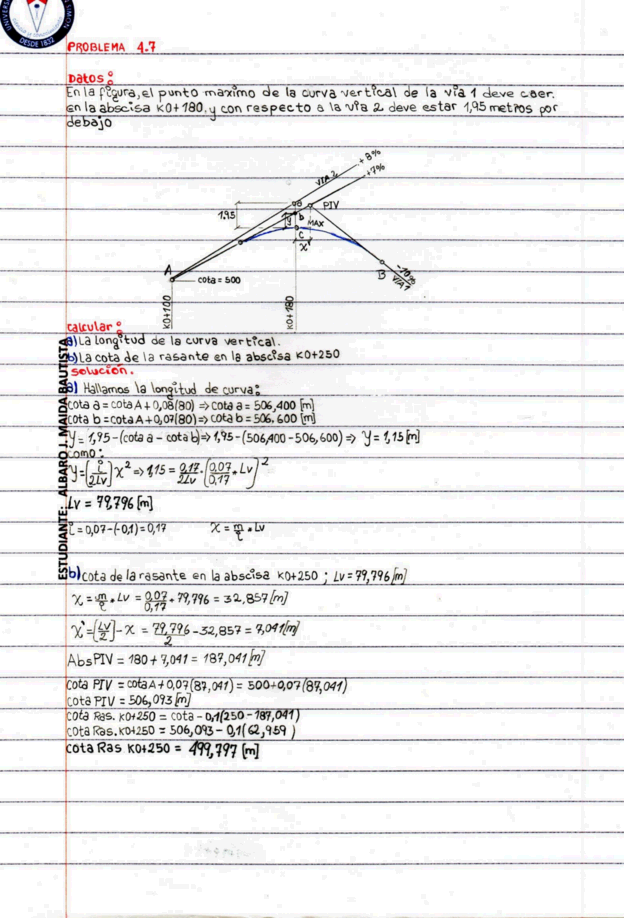 DESDE 1832
PROBLEMA 4.7
Datos:
En la figura, el punto maximo de la curva vertical de la vía 1 deve caer.
en la abscisa K0+180, y con respecto a la vía 2 deve estar 1,95 metros por
debajo
+8%
VIA 2
+7%
a
PIV
1,95
b
y
MAX
C
X'
A
cota = 500
B
-10%
VIA 1
K0+100
K0+180
calcular:
a) La longitud de la curva vertical.
b) La cota de la rasante en la abscisa K0+250
solución.
a) Hallamos la longitud de curva:
cota a = cota A + 0,08(80) ⇒ cota a = 506,400 [m]
cota b = cota A + 0,07(80) ⇒ cota b = 506.600 [m]
Y = 1,95 - (cota a - cota b) ⇒ 1,95 - (506,400 - 506,600) ⇒ Y = 1,15 [m]
como:
Y = (i/2Lv) X² ⇒ 1,15 = 0,17/2Lv · (0,07/0,17 * Lv)²
Lv = 79,796 [m]
i = 0,07 - (-0,1) = 0,17 X = m/i * Lv
b) cota de la rasante en la abscisa K0+250 ; Lv = 79,796 [m]
X = m/i * LV = 0,07/0,17 * 79,796 = 32,857 [m]
X' = [LV/2] - X = 79,796/2 - 32,857 = 7,041 [m]
Abs PIV = 180 + 7,041 = 187,041 [m]
Cota PIV = cota A + 0,07(87,041) = 500 + 0,07(87,041)
cota PIV = 506,093 [m]
cota Ras. K0+250 = cota - 0,1(250 - 187,041)
cota Ras. K0+250 = 506,093 - 0,1(62,959)
cota Ras K0+250 = 499,797 [m]
ESTUDIANTE: ALBARO J. MAIDA BAUTISTA